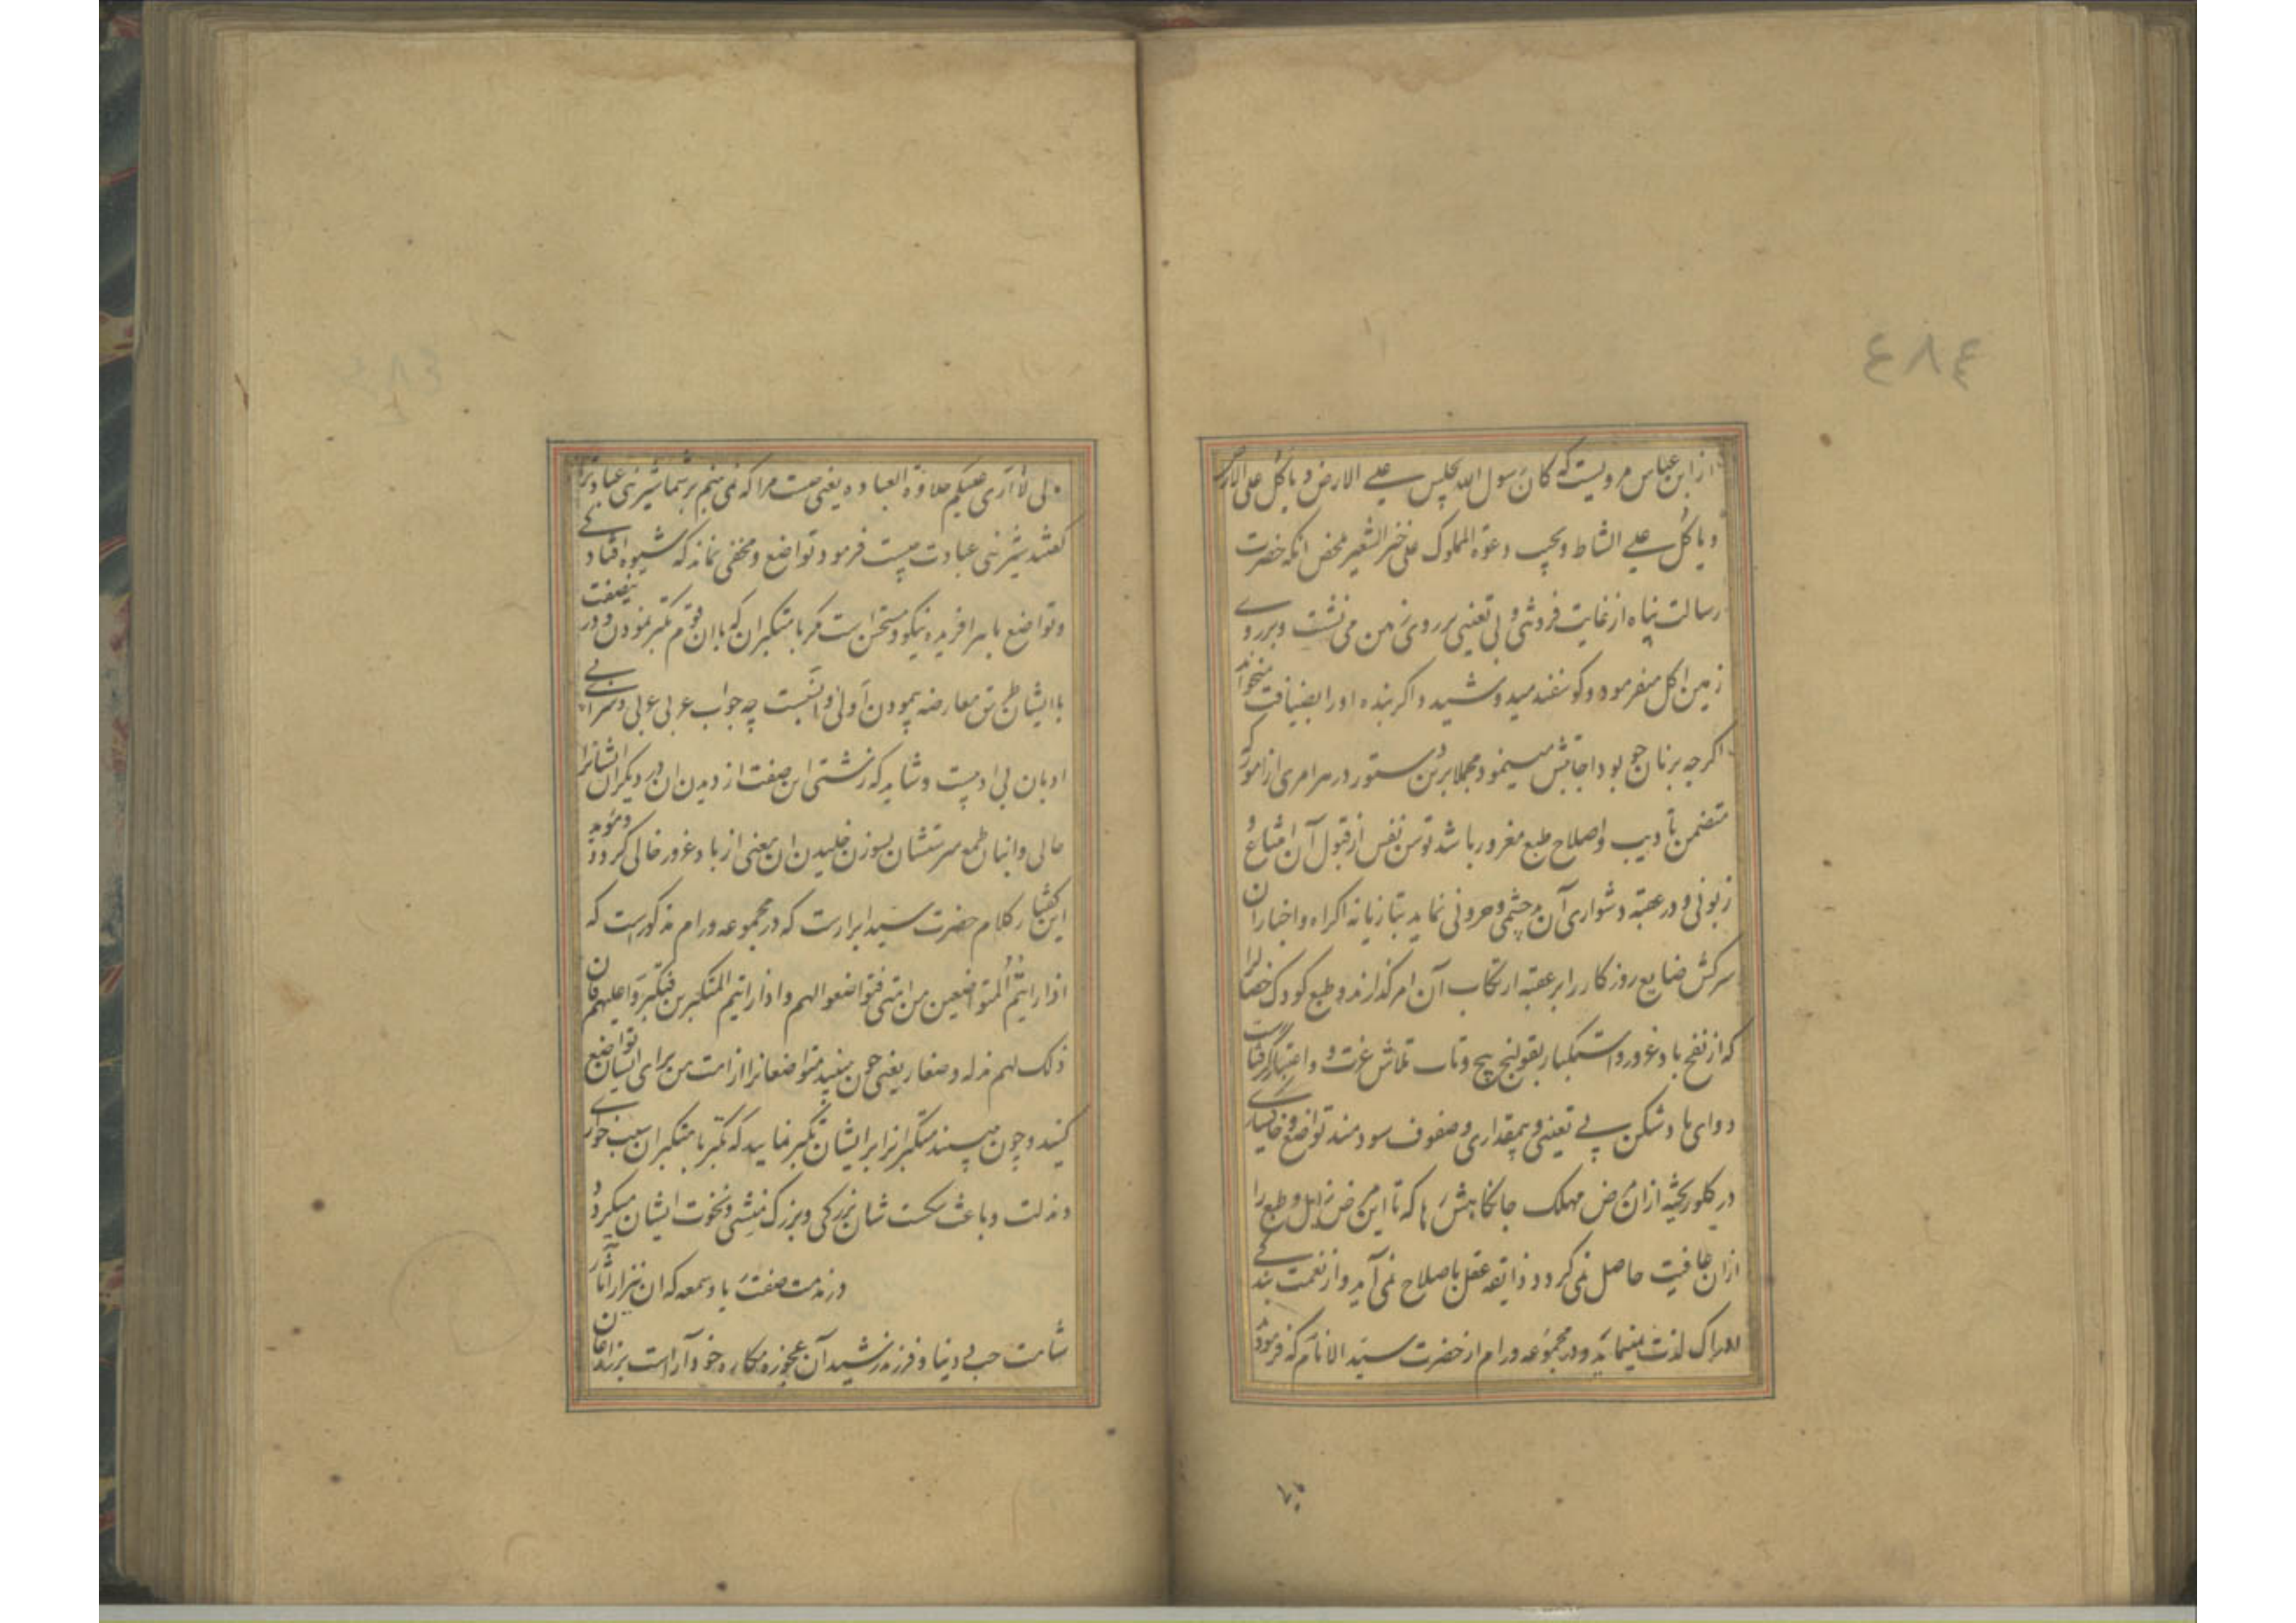 ٤٨٤
از ابن عباس مرویست که کان رسول الله یجلس علی الارض و یاکل علی الارض
و یاکل علی الشاط و یجیب دعوة المملوک علی خبز الشعیر محض انکه حضرت
رسالت پناه از غایت فروتنی و بی تعینی بر روی زمین می نشست و بر روی
زمین اکل میفرمود و کوسفند میدوشید و اکر بنده او را بضیافت میخواند
اکرچه بر نان جو بود اجابتش مینمود مجملا برین دستور در هر امری از امور که
متضمن تادیب و اصلاح طبع مغرور باشد توسن نفس از قبول آن امتناع و
زبونی و در عقبه دشواری آن بدچشمی و حرونی نماید بتازیانه اکراه و اخبار آن
سرکش ضایع روزکار را بر عقبه ارتکاب آن امر کذراند و طبع کودک خصال را
که از نفخ باد غرور و استکبار بقولنج پیچ و تاب تلاش عزت و اعتبار کرفتار است
دوای باد شکن بی تعینی و بیمقداری و صفوف سودمند تواضع و خاکساری
در کلو ریخته از ان مرض مهلک جانکاهش رها که تا این مرض زایل و طبع را
از ان عافیت حاصل نمی کردد ذایقه عقل باصلاح نمی آید و از نعمت بندکی
ادراک لذت نمینماید و در مجموعه ورام از حضرت سید الانام که فرمود
لی لا اری علیکم حلاوة العباده یعنی چیست مرا که نمی بینم بر شما شیرینی عبادترا
کفتند شیرینی عبادت چیست فرمود تواضع و مخفی نماند که شیوه افتادکی
و تواضع با هر افریده نیکو و مستحسن است مکر با متکبران که با ان قوم تکبر نمودن و در ینصفت
با ایشان طریق معارضه پیمودن اولی و انسبت چه جواب عربی عربی و سزای بی
ادبان بی ادبیست و شاید که زشتی این صفت از دیدن ان در دیکران ایشانرا
حالی و انبان طمع سرتشان بسوزن خلیدن ان معنی از باد غرور خالی کردد و موید
این کفتار کلام حضرت سید ابرارست که در مجموعه ورام مذکورست که
اذا رایتم المتواضعین من امتی فتواضعوا لهم و اذا رایتم المتکبرین فتکبروا علیهم فان
ذلک لهم مذله و صغار یعنی چون ببینید متواضعانرا از امت من برای ایشان تواضع
کنید و چون ببینید متکبرانرا بر ایشان تکبر نمایید که تکبر با متکبران سبب خواری
و مذلت و باعث شکست شان بزرکی و بزرک منشی و نخوت ایشان میکردد
در مذمت صفت ریا و سمعه که ان نیز از آثار
شامت حب دنیا و فرزند رشید آن عجوزه مکاره خودآراست